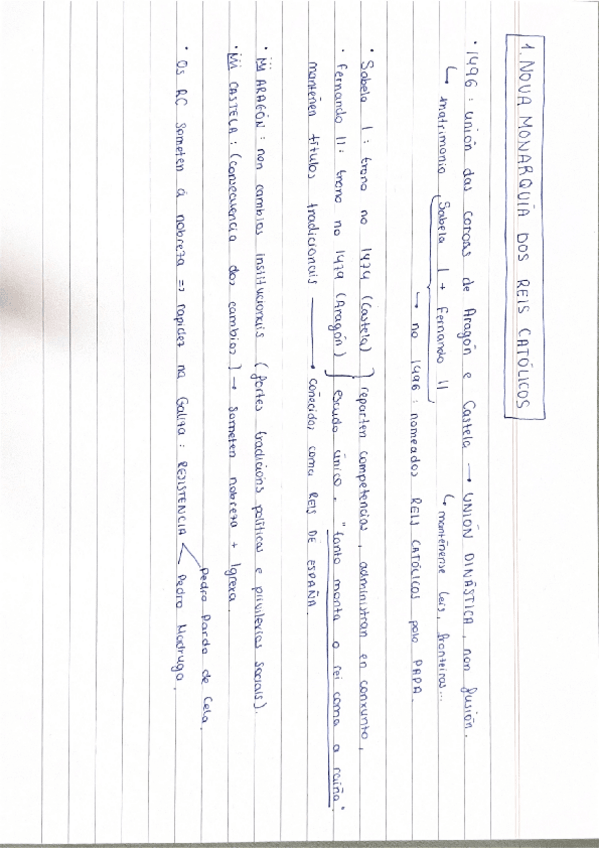 1. NOVA MONARQUÍA DOS REIS CATÓLICOS
• 1496: unión das coroas de Aragón e Castela → UNIÓN DINÁSTICA, non fusión.
↳ matrimonio Sabela I + Fernando II
↳ manténense leis, fronteiras...
↳ no 1496: nomeados REIS CATÓLICOS polo PAPA.
• Sabela I: trono no 1474 (Castela) } reparten competencias, administran en conxunto,
• Fernando II: trono no 1479 (Aragón) } escudo único, "tanto monta o rei coma a raíña".
manteñen títulos tradicionais → coñecidos como REIS DE ESPAÑA.
• ARAGÓN: non cambios institucionais (fortes tradicións políticas e privilexios sociais).
• CASTELA: (consecuencia dos cambios) → someten nobreza + Igrexa.
• Os RC someten á nobreza => rapidez na Galiza: RESISTENCIA < Pedro Pardo de Cela.
Pedro Madruga.